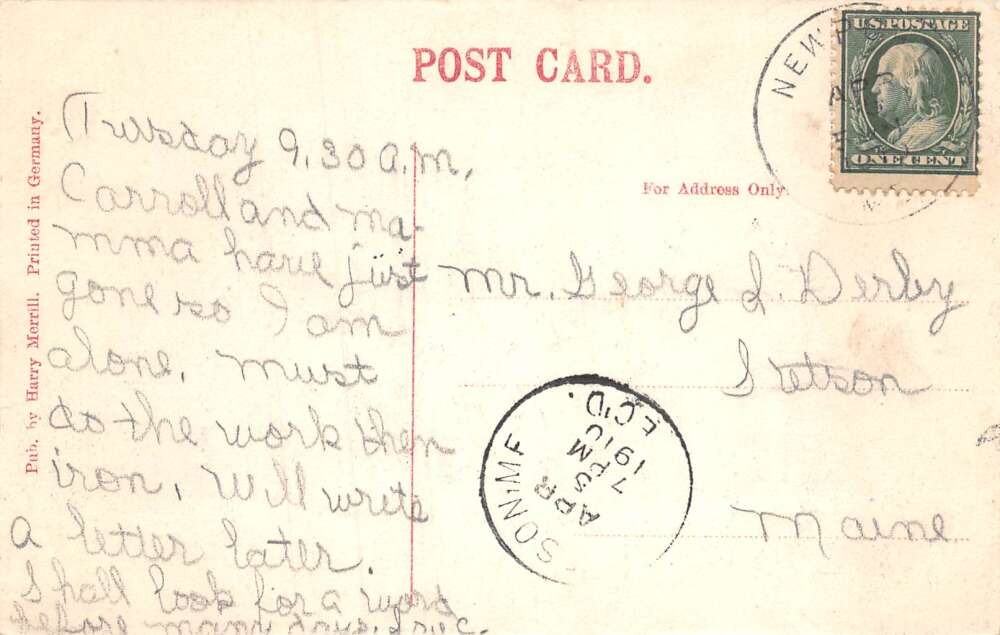 POST CARD.
U.S. POSTAGE
ONE CENT
NEWP
AP
For Address Only.
Pub. by Harry Merrill. Printed in Germany.
Tuesday 9.30 A.M,
Carroll and ma-
mma have just
gone so I am
alone. Must
do the work then
iron. Will write
a letter later.
Shall look for a word
before many days.
Mr. George L. Derby
Stetson
Maine
SON.ME
APR
5
7 PM
1910
EC'D.